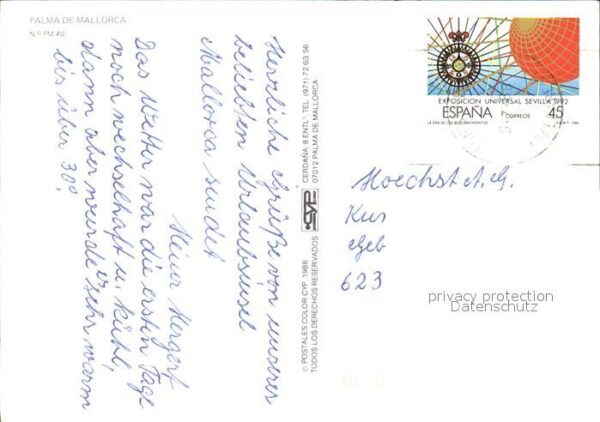 PALMA DE MALLORCA
N.º PM 40
Herzliche Grüße von unserer
beliebten Urlaubsinsel
Mallorca sendet
Heiner
Das Wetter war die ersten Tage
noch wechselhaft u. kühl,
dann aber wurde es sehr warm
bis über 30°.
© POSTALES COLOR CYP, 1986
TODOS LOS DERECHOS RESERVADOS
CYP
CERDAÑA, 8 ENTL.º TEL. (971) 72 63 56
07012 PALMA DE MALLORCA
EXPOSICION UNIVERSAL SEVILLA 1992
ESPAÑA CORREOS 45
LA ERA DE LOS DESCUBRIMIENTOS
Hoechst A.G.
Kus
Geb
623
privacy protection
Datenschutz